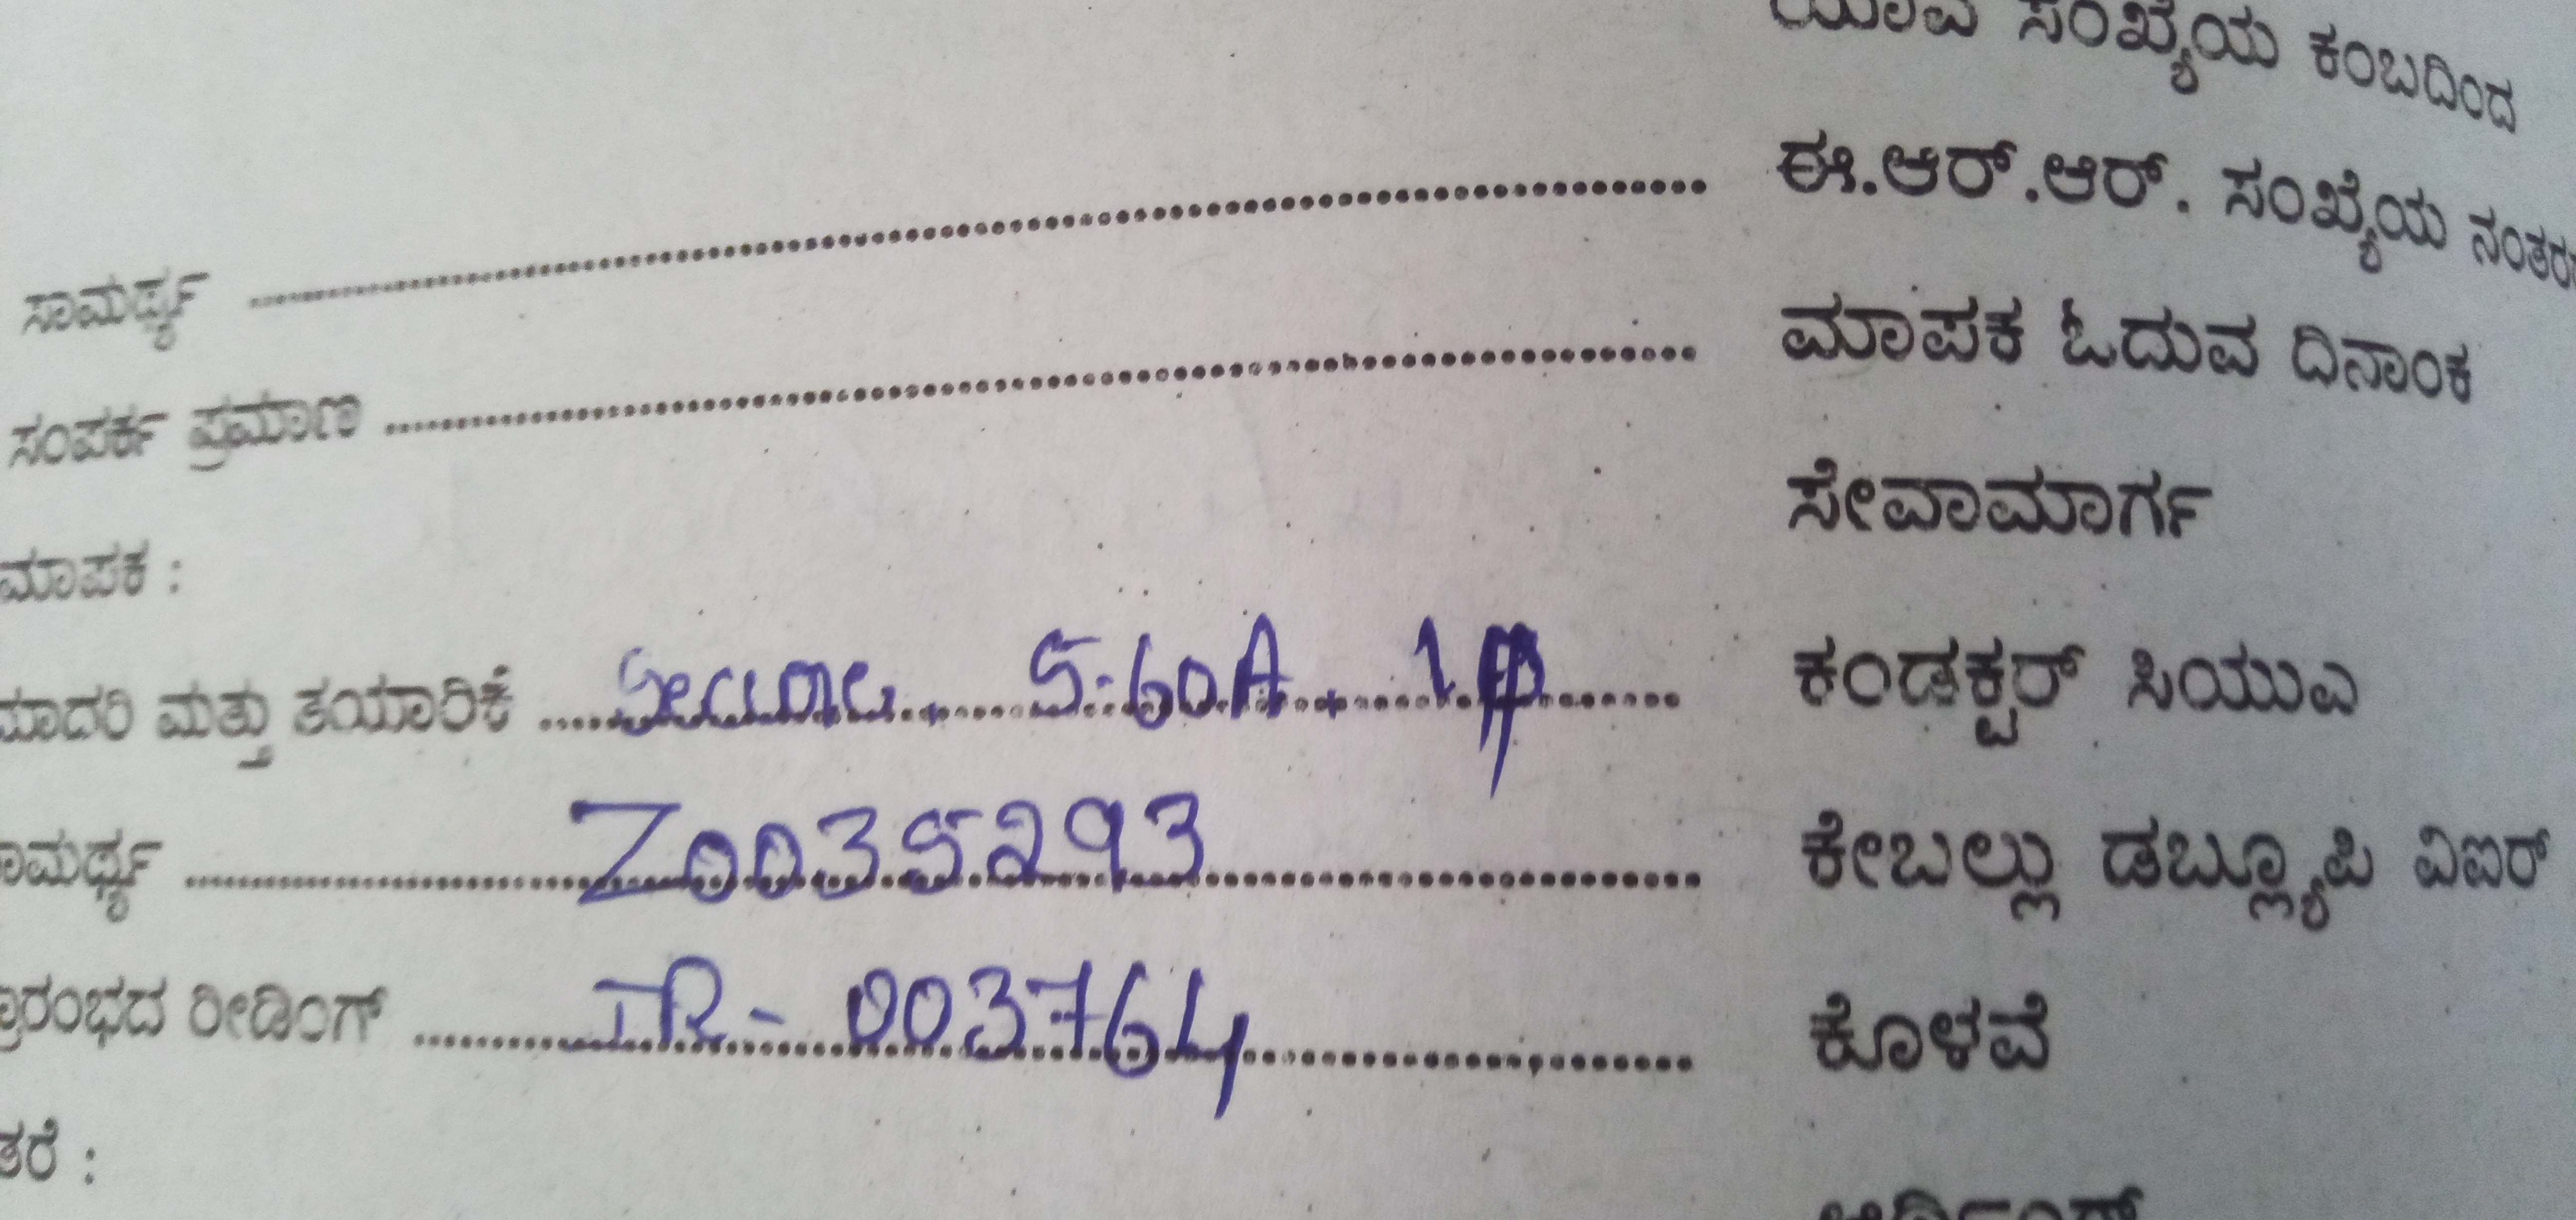 ಯಾವ ಸಂಖ್ಯೆಯ ಕಂಬದಿಂದ
ಸಾಮರ್ಥ್ಯ ........ ಈ.ಆರ್.ಆರ್. ಸಂಖ್ಯೆಯ ನಂತರ
ಸಂಪರ್ಕ ಪ್ರಮಾಣ ........ ಮಾಪಕ ಓದುವ ದಿನಾಂಕ
ಮಾಪಕ : ಸೇವಾಮಾರ್ಗ
ಮಾದರಿ ಮತ್ತು ತಯಾರಿಕೆ .... 5-60A. 1φ ಕಂಡಕ್ಟರ್ ಸಿಯುಎ
ಸಾಮರ್ಥ್ಯ ........ Z0035293 ಕೇಬಲ್ಲು ಡಬ್ಲ್ಯೂಪಿ ವಿಐರ್
ಪ್ರಾರಂಭದ ರೀಡಿಂಗ್ ........ IR - 003764 ಕೊಳವೆ